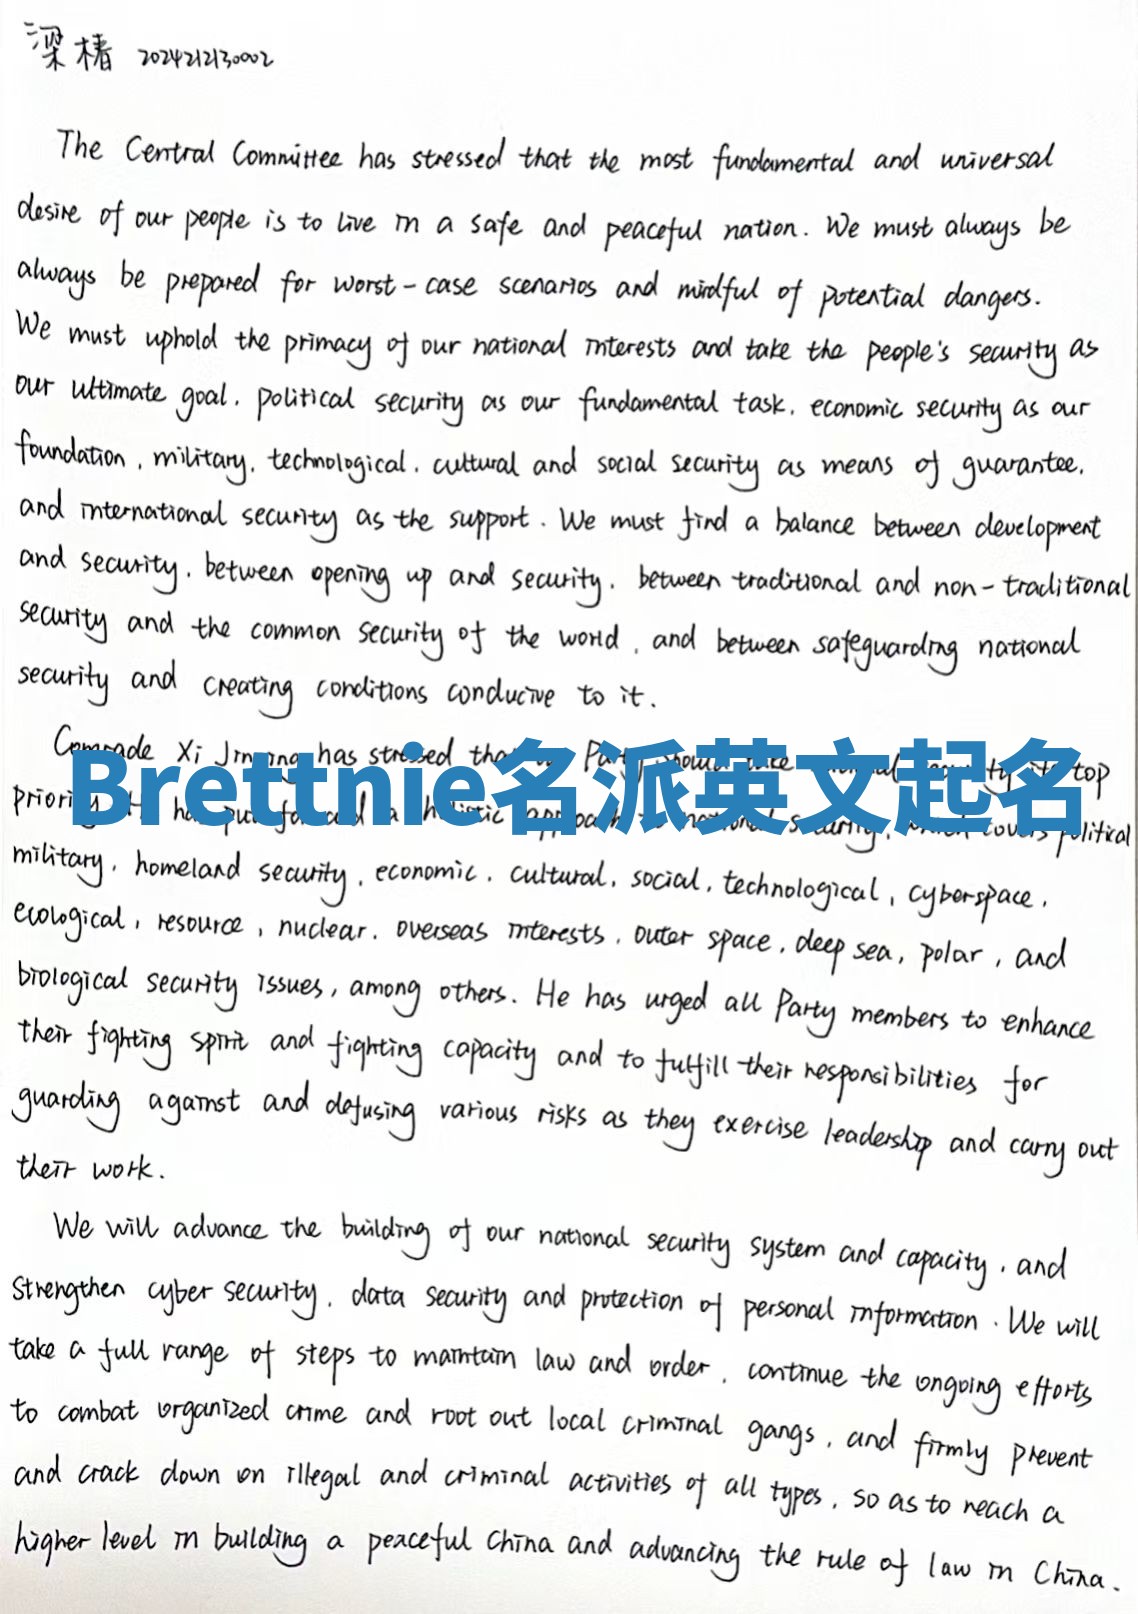 梁椿 2024212130002
The Central Committee has stressed that the most fundamental and universal
desire of our people is to live in a safe and peaceful nation. We must always be
always be prepared for worst-case scenarios and mindful of potential dangers.
We must uphold the primacy of our national interests and take the people's security as
our ultimate goal, political security as our fundamental task, economic security as our
foundation, military, technological, cultural and social security as means of guarantee,
and international security as the support. We must find a balance between development
and security, between opening up and security, between traditional and non-traditional
security and the common security of the world, and between safeguarding national
security and creating conditions conducive to it.
Comrade Xi Jinping has stressed that Party should take security its top
Brettnie名派英文起名
priority. He has put forward a holistic approach to national security, which covers political
military, homeland security, economic, cultural, social, technological, cyberspace,
ecological, resource, nuclear, overseas interests, outer space, deep sea, polar, and
biological security issues, among others. He has urged all Party members to enhance
their fighting spirit and fighting capacity and to fulfill their responsibilities for
guarding against and defusing various risks as they exercise leadership and carry out
their work.
We will advance the building of our national security system and capacity, and
strengthen cyber security, data security and protection of personal information. We will
take a full range of steps to maintain law and order, continue the ongoing efforts
to combat organized crime and root out local criminal gangs, and firmly prevent
and crack down on illegal and criminal activities of all types, so as to reach a
higher level in building a peaceful China and advancing the rule of law in China.